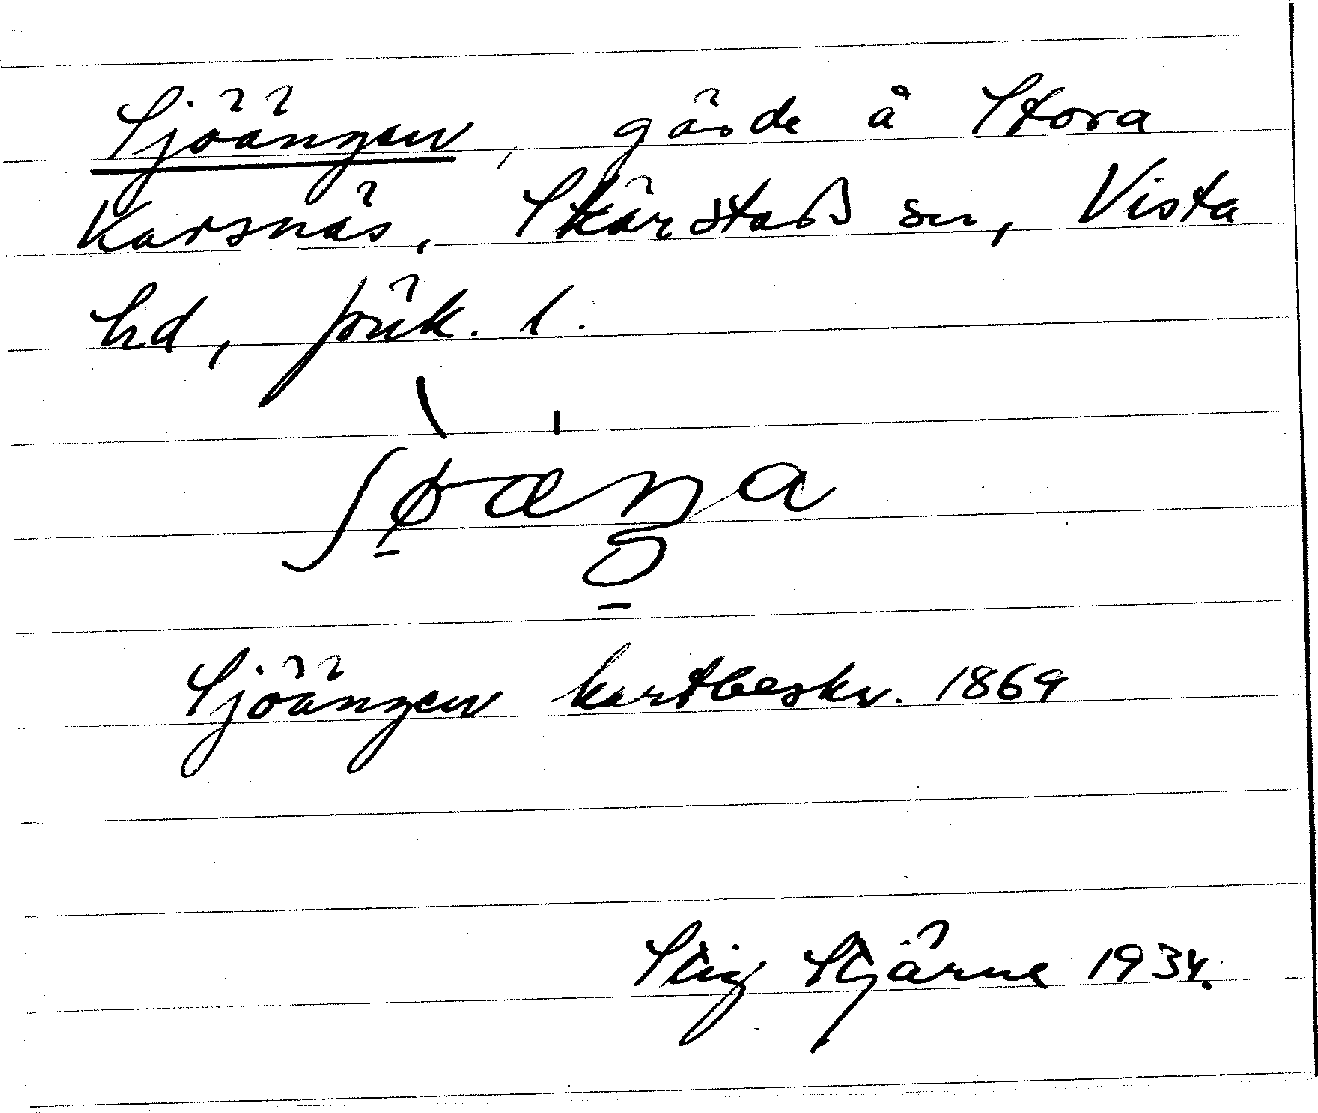 Sjöängen, gärde å Stora
Karsnäs, Skärstads sn, Vista
hd, Jönk. l.
ʃøæŋa
Sjöängen kartbeskr. 1869
Stig Stjärne 1934.